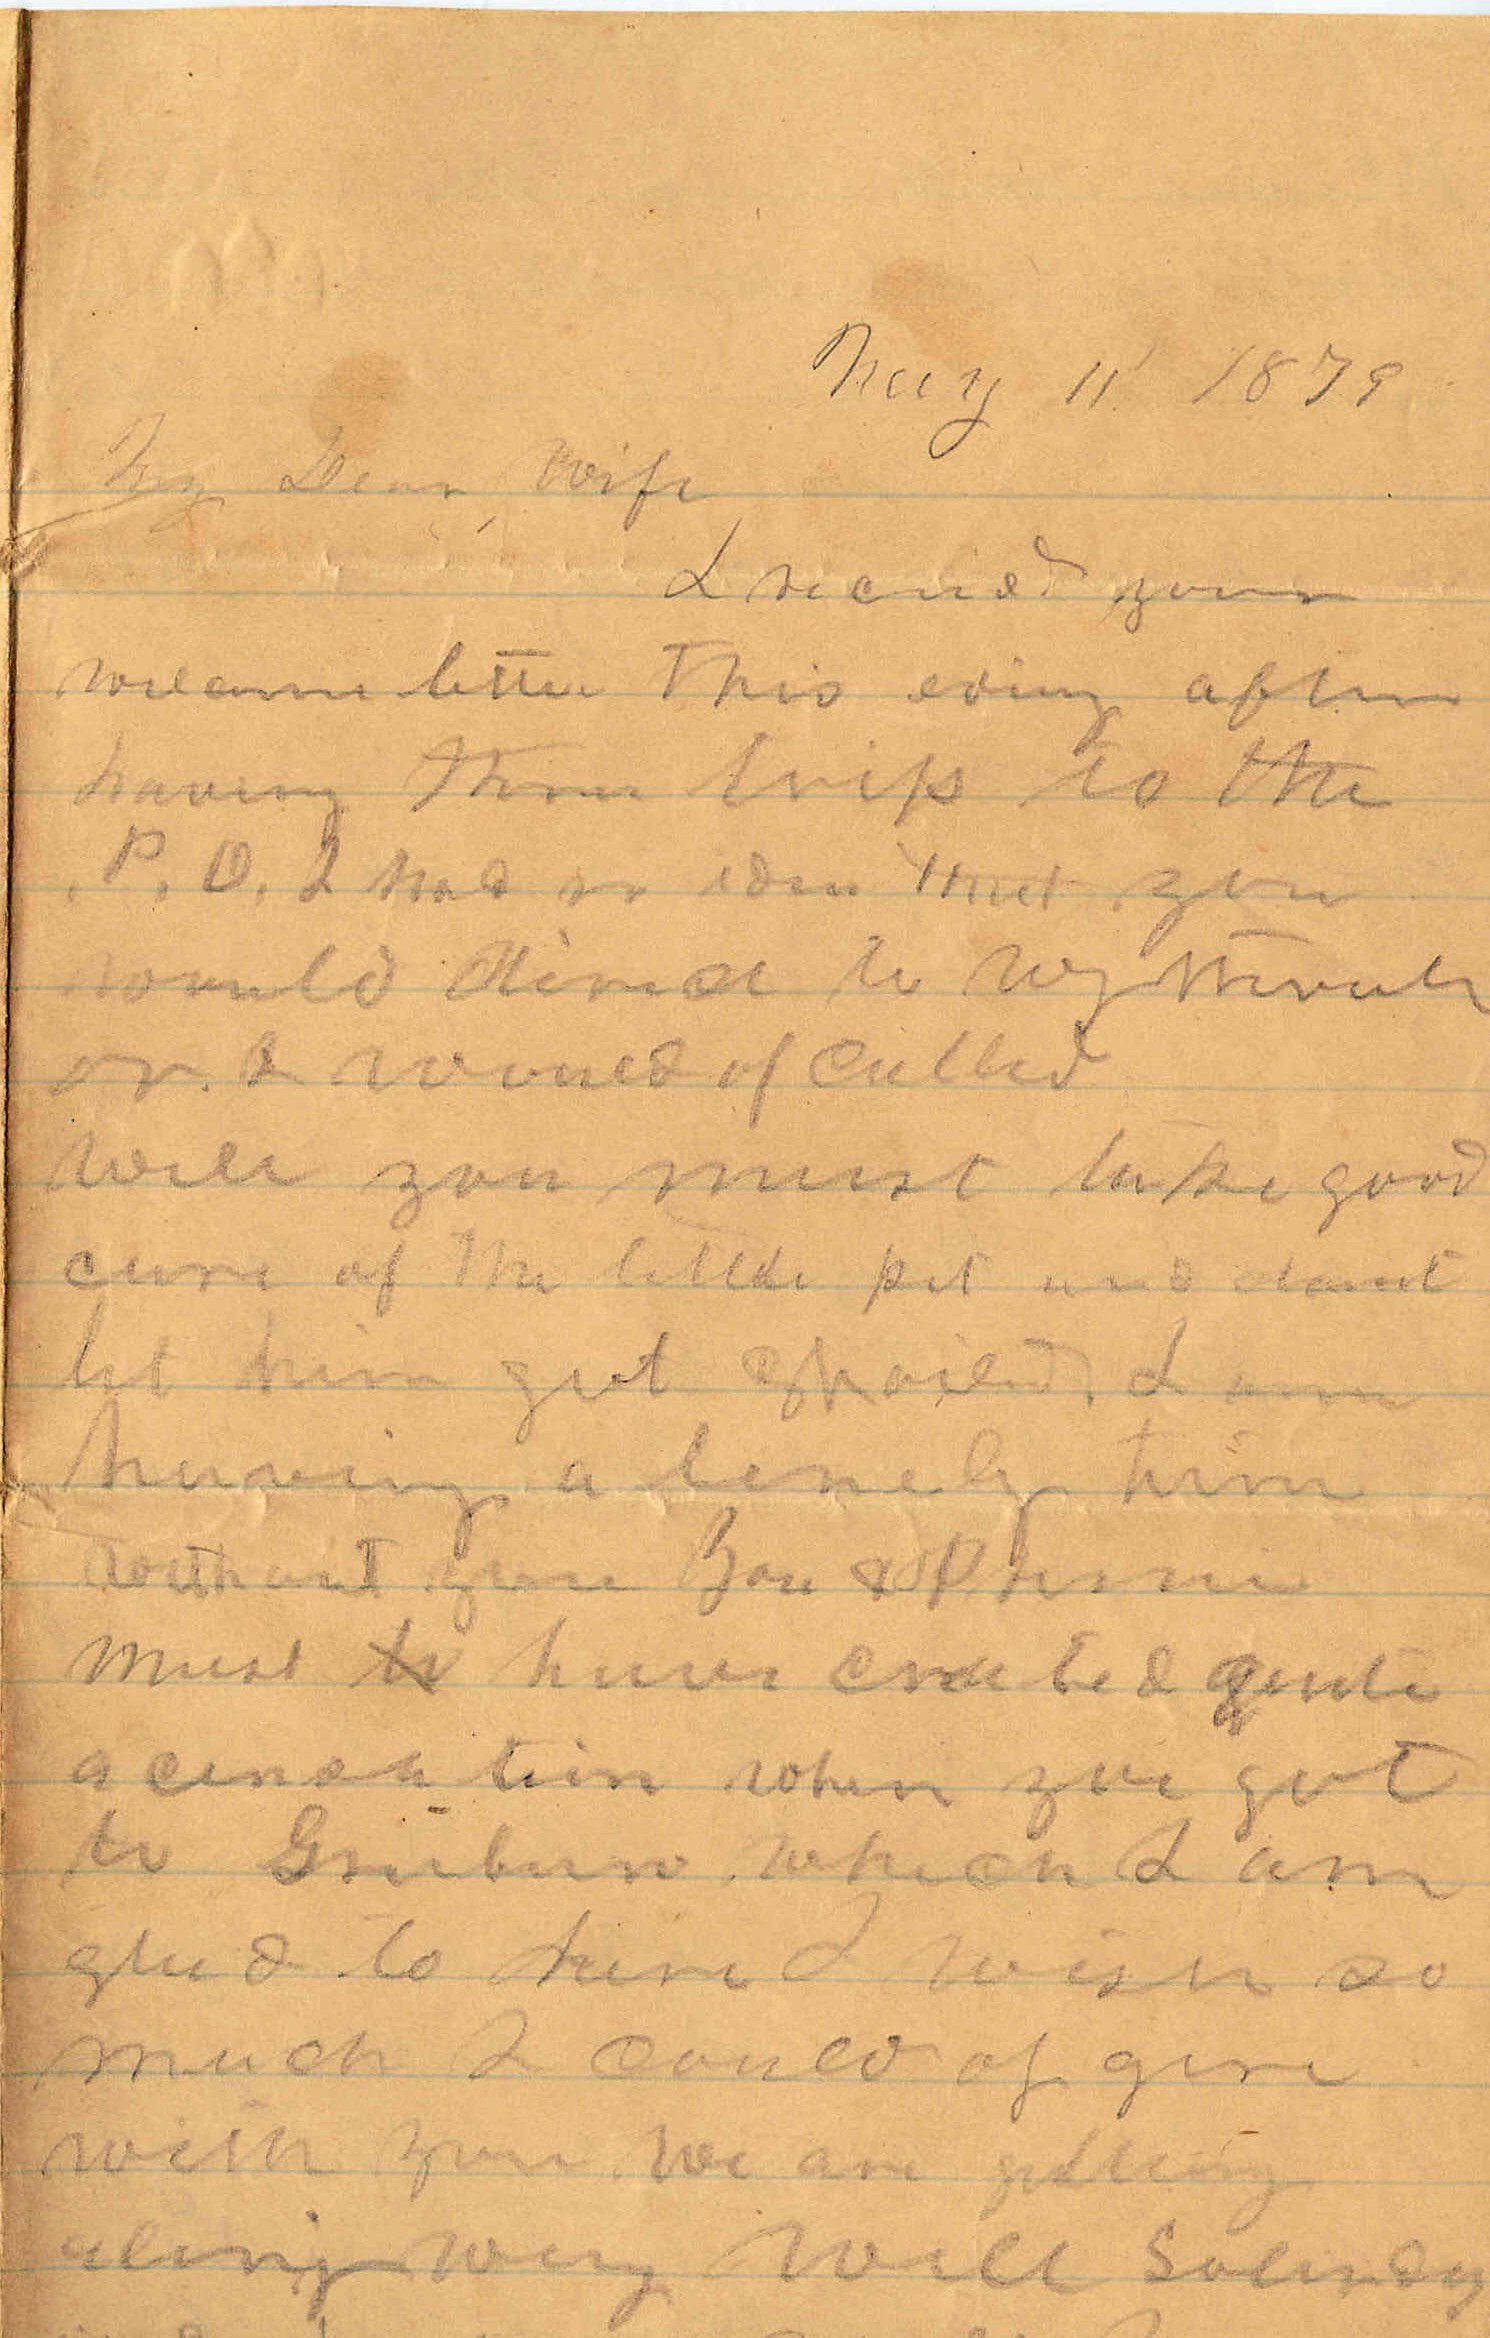 May 11 1879
My Dear Wife
I recived your
welcome letter This eving after
having three trips to the
P. O. I had no idea that you
would direct to
or I would of called
well you must take good
care of the little pet and dont
let him get spoiled. I am
having a lonely time
without you You &
must to have created quite
a censation when you got
to which I am
glad to hear I wish so
much I could of gone
with you We are getting
along very well Saturday